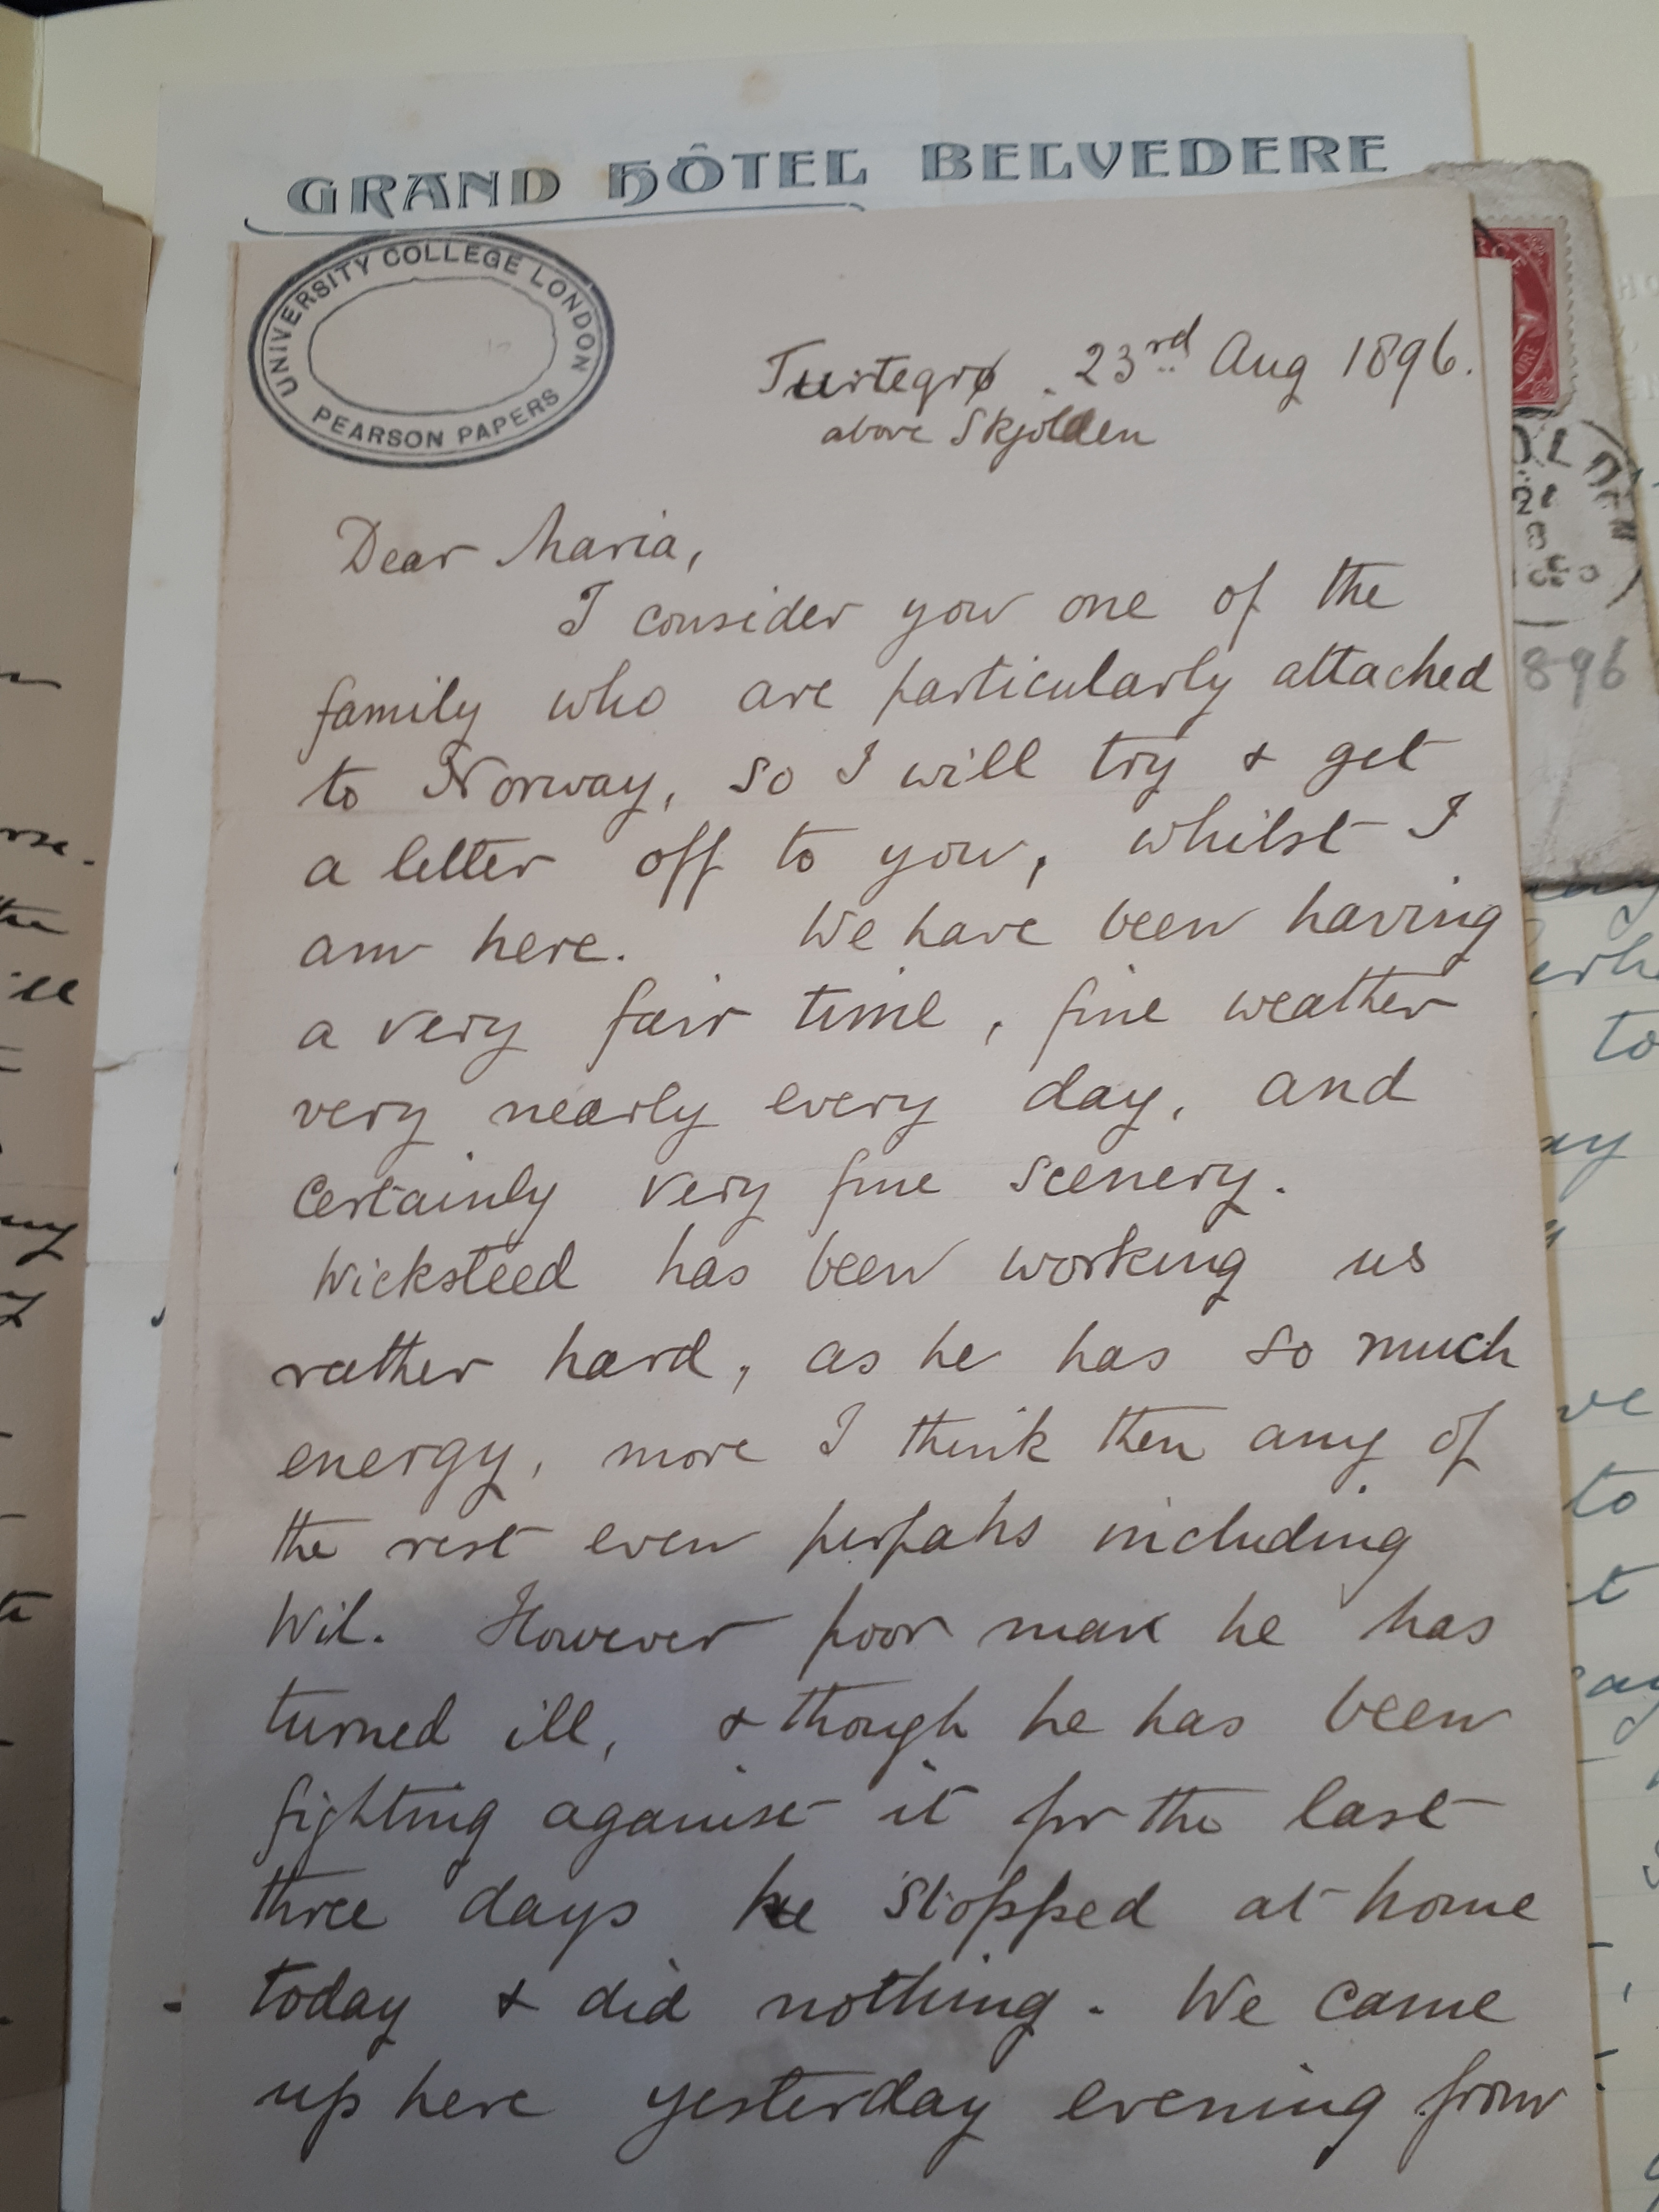 GRAND HÔTEL BELVEDERE
UNIVERSITY COLLEGE LONDON
PEARSON PAPERS
Turtegrø . 23rd Aug 1896.
above Skjolden
Dear Maria,
I consider you one of the
family who are particularly attached
to Norway, so I will try & get
a letter off to you, whilst I
am here. We have been having
a very fair time, fine weather
very nearly every day, and
certainly very fine scenery.
Wicksteed has been working us
rather hard, as he has so much
energy, more I think then any of
the rest even perpahs including
Wil. However poor man he has
turned ill, & though he has been
fighting against it for the last
three days he stopped at home
today & did nothing. We came
up here yesterday evening from
896
to
to